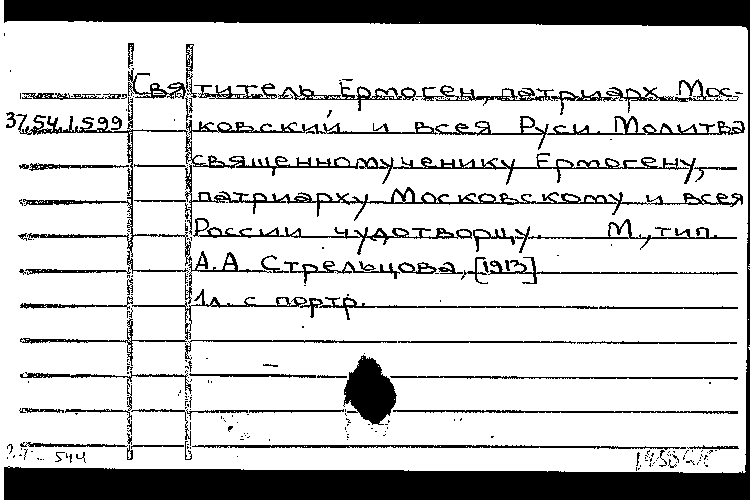 Святитель Ермоген, патриарх Мос-
37.54.1.599 ковский и всея Руси. Молитва
священномученику Ермогену,
патриарху Московскому и всея
России чудотворцу. М., тип.
А.А. Стрельцова, [1913]
1л. с портр.
544